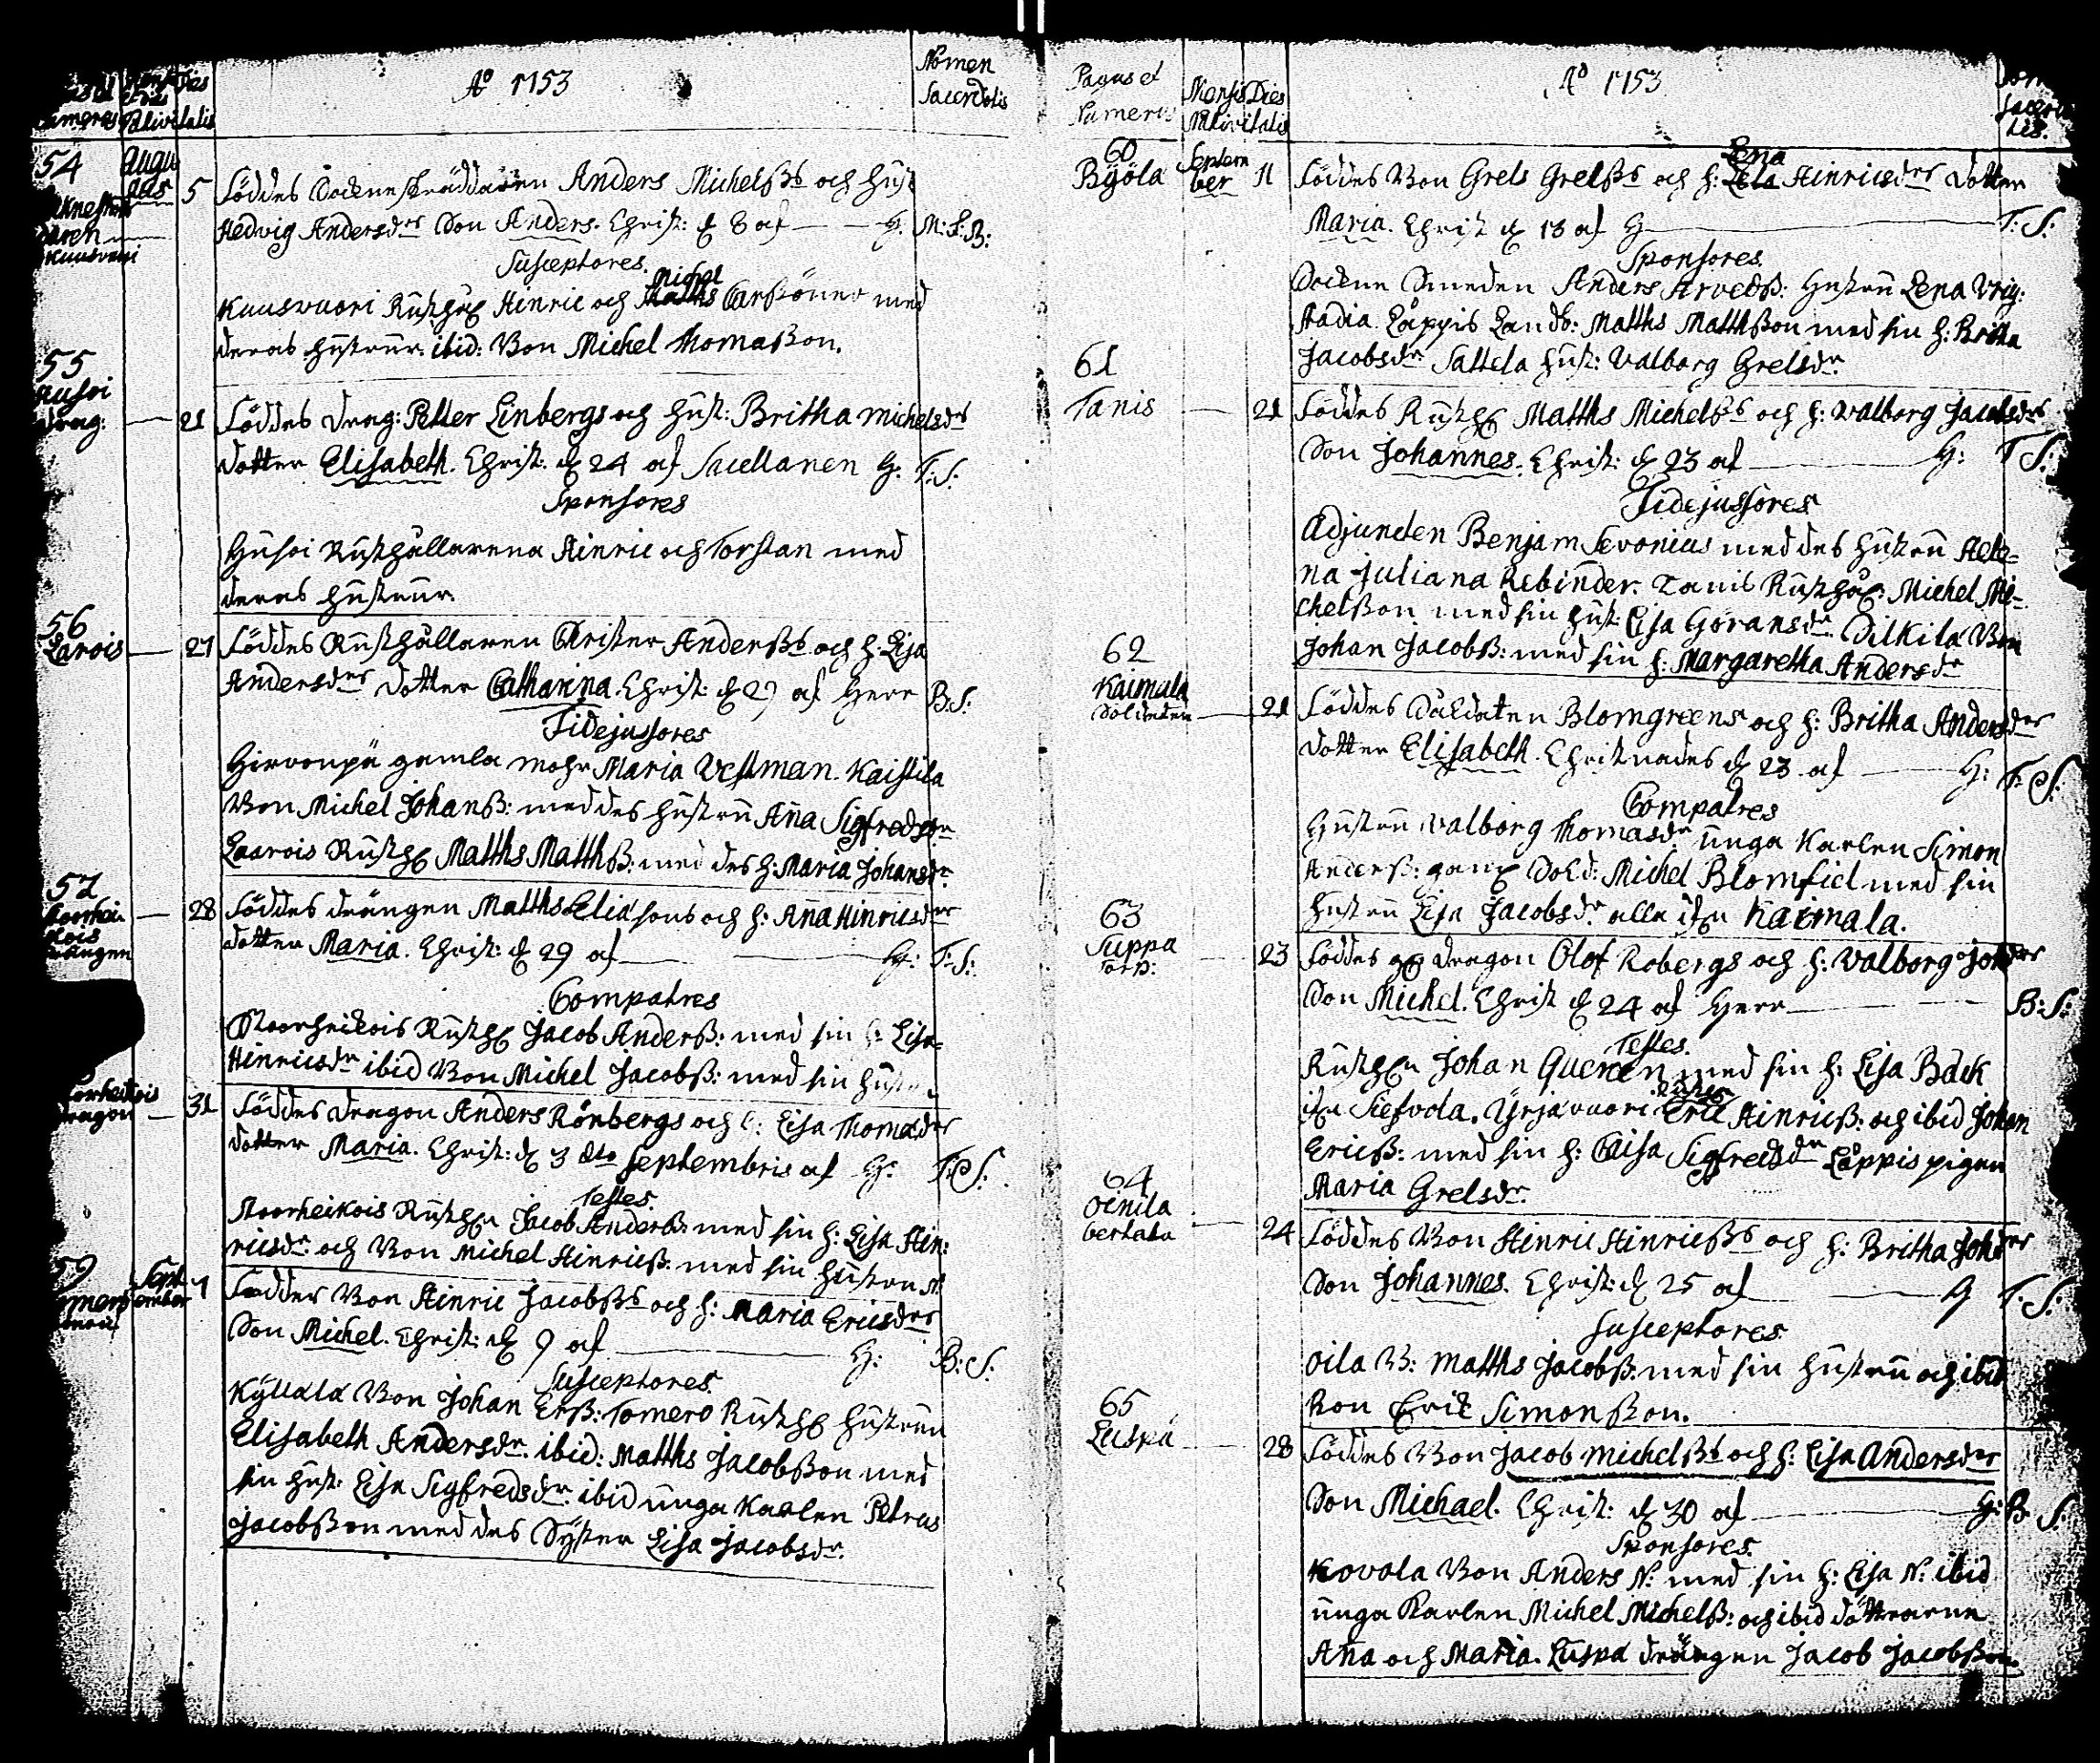 Aº 1753
Nomen
Sacerdotis
54
Augu
stus
5 Föddes Sockneskräddaren Anders Michelßs och hust
Hedvig Andersdrs Son Anders. Christ: d 8 af — — H. M: S: B:
Susceptores.
Michel
Kuusvuori Rusth: Hinric och Matths Carßöner med
deras hustrur. ibid: Bon Michel Thomaßon.
55
Husoi
drag: — 21 Föddes drag: Petter Linbergs och hust: Britha Michelsdrs
dotter Elisabeth. Christ. d 24 af Sacellanen H. T: S:
Sponsores
Husoi Rusthållarena Hinric och Torstan med
deras hustrur.
56
Larois — 27 Föddes Rusthållaren Christer Anderßs och h. Lisa
Andersdrs dotter Catharina. Christ: d 29 af Herr B: S:
Fidejussores
Hirvonpä gamla mohr Maria Vestman. Kaistila
Bon Michel Johanß: med des hustru Aña Sigfredsdr
Laarois Rusth: Matths Matthß: med des h: Maria Johansdr.
57
— 28 Föddes drängen Matths Eliæsons och h: Aña Hinricsdrs
drängen
dotter Maria. Christ: d 29 af — — H: T: S:
Compatres
Stoorheikois Rusth: Jacob Anderß: med sin h: Lisa
Hinricsdr ibid Bon Michel Jacobß: med sin hustru
dragon — 31 Föddes dragon Anders Rönbergs och h: Lisa Thomædrs
dotter Maria. Christ: d 3 dto Septembris af H: T: S:
Testes.
Stoorheikois Rusth: Jacob Anderß: med sin h: Lisa Hin-
ricsdr och Bon Michel Hinricß: med sin hustru N:
59
Sept
ember 7 Föddes Bon Hinric Jacobßs och h: Maria Ericsdrs
Son Michel. Christ: d 9 af — H: B: S:
Susceptores.
Kyllälä Bon Johan Erß: Tomero Rusth: hustrun
Elisabeth Andersdr. ibid: Matths Jacobßon med
sin hust: Lisa Sigfredsdr. ibid unga Karlen Petrus
Jacobßon med des Syster Lisa Jacobsdr.
Pagus et
Numerus
Mensis Dies
Nativitatis
Aº 1753
60
Byöla
Septem
ber 11 Föddes Bon Grels Grelßs och h: Lena Hinricsdrs dotter
Maria. Christ d 13 af H — T: S:
Sponsores.
Sockne Smeden Anders Arvedß: Hustru Lena Urig:
stadia. Läppis Landb: Matths Matthßon med sin h: Britha
Jacobsdr Sattela hust: Valborg Grelsdr.
61
Tanis — 21 Föddes Rusth: Matths Michelßs och h: Valborg Jacobsdrs
Son Johannes. Christ: d 23 af — H: T S:
Fidejussores
Adjuncten Benjam Sevonius med des hustru Hele-
na Juliana Rebinder. Tanis Rusth: Michel Mi-
chelßon med sin hust: Lisa Göransdr. Silkilä Bon
Johan Jacobß: med sin h: Margaretha Andersdr
62
Kaimala
Soldaten — 21 Föddes Soldaten Blomgreens och h: Britha Andersdrs
dotter Elisabeth. Christnades d 23 af — H: T: S:
Compatres
Hustru Valborg Thomasdr unga Karlen Simon
Anderß: gam: Sold: Michel Blomfiel med sin
hustru Lisa Jacobsdr alla ifn Kaimala.
63
Suppa
torp: — 23 Föddes dragon Olof Robergs och h: Valborg Johdrs
Son Michel. Christ d 24 af Herr — B: S:
Testes.
Rusth: Johan Queken med sin h: Lisa Bäck
ifn Siefvola. Yrjävuori Eric Hinricß: och ibid Johan
Ericß: med sin h: Caisa Sigfredsdr Läppis pigan
Maria Grelsdr.
64
Oinila
bertala — 24 Föddes Bon Hinric Hinricßs och h: Britha Johdrs
Son Johannes. Christ: d 25 af — H T: S:
Susceptores
Oila B: Matths Jacobß: med sin hustru och ibid
Bon Eric Simonßon.
65
Luspä — 28 Föddes Bon Jacob Michelßs och h: Lisa Andersdrs
Son Michael. Christ: d 30 af — H: B S:
Sponsores.
Kovola Bon Anders N: med sin h: Lisa N: ibid
unga Karlen Michel Michelß: och ibid döttrarne
Aña och Maria. Luspä drängen Jacob Jacobßon